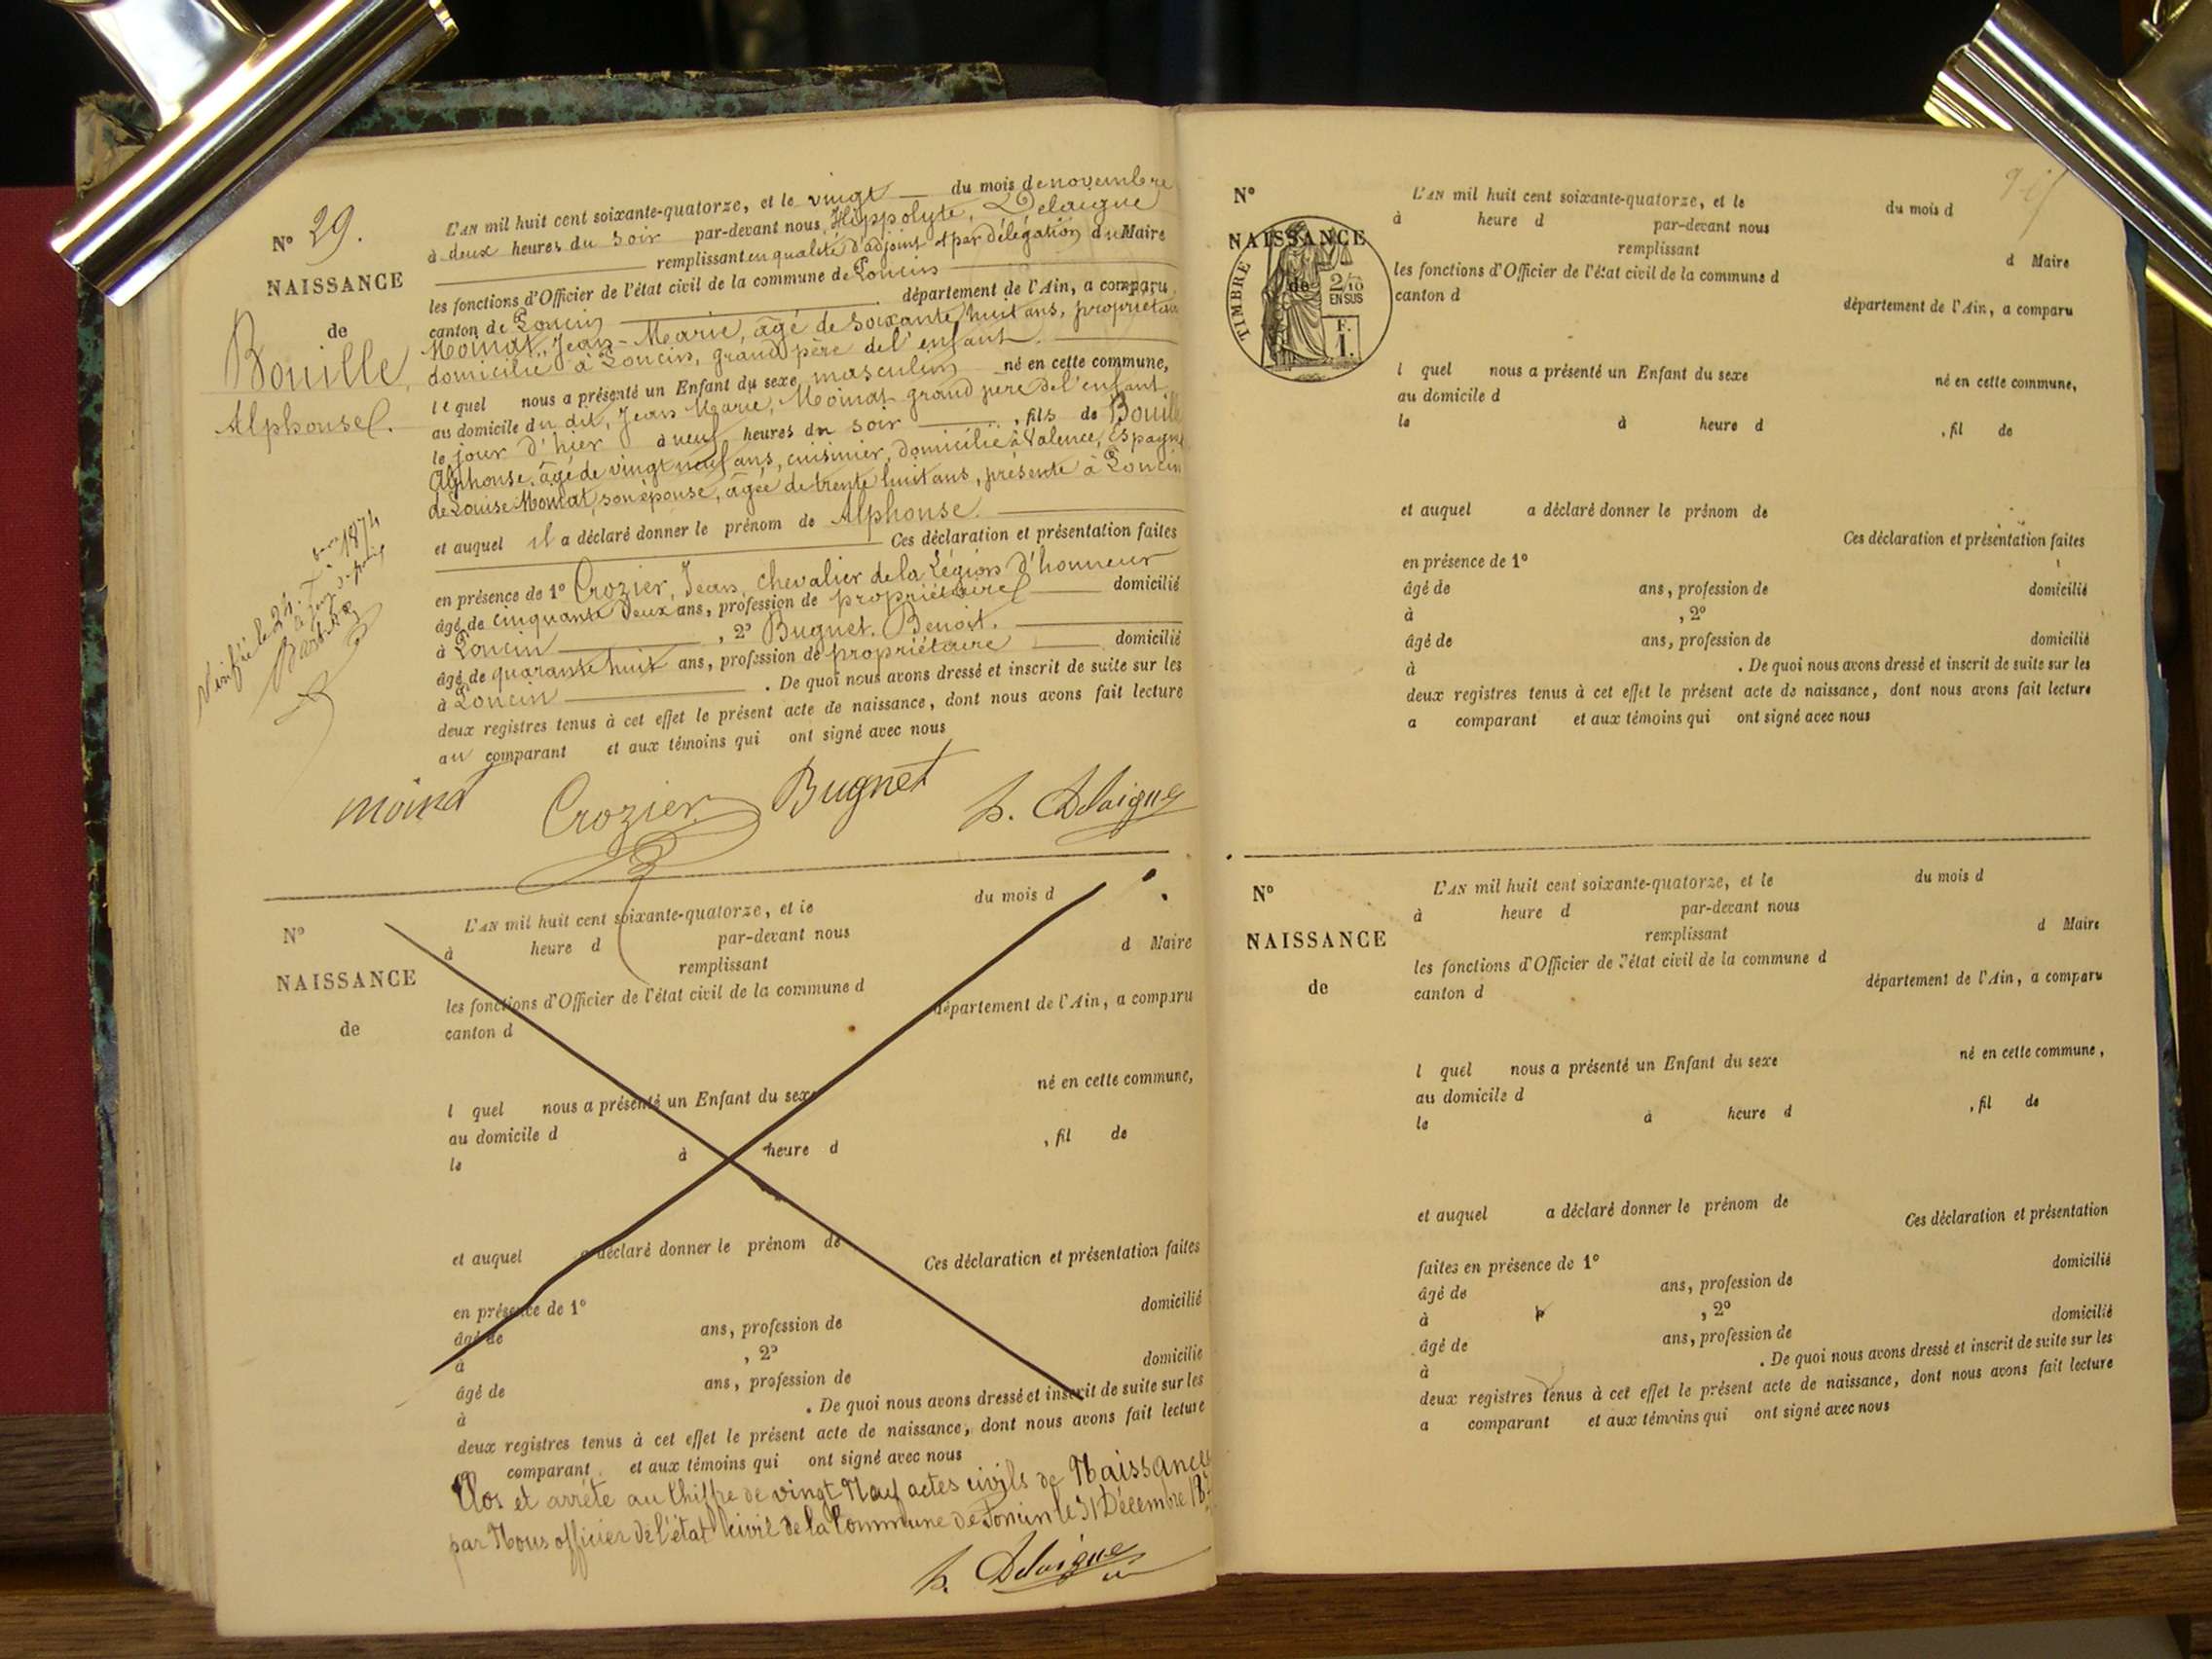 N° 29.
NAISSANCE
de
Bouille,
Alphonse.
L'AN mil huit cent soixante-quatorze, et le vingt du mois de novembre
à deux heures du soir par-devant nous Hippolyte, Delaigue
remplissant en qualité d'adjoint et par délégation du Maire
les fonctions d'Officier de l'état civil de la commune de Poncin
canton de Poncin département de l'Ain, a comparu
Moinat, Jean-Marie, âgé de soixante huit ans, propriétaire
domicilié à Poncin, grand père de l'enfant
lequel nous a présenté un Enfant du sexe masculin né en cette commune,
au domicile du dit, Jean Marie, Moinat grand père de l'enfant
le jour d'hier à neuf heures du soir, fils de Bouille
Alphonse, âgé de vingt neuf ans, cuisinier, domicilié à Valence, Espagne
de Louise Moinat, son épouse, âgée de trente huit ans, présente à Poncin
et auquel il a déclaré donner le prénom de Alphonse.
Ces déclaration et présentation faites
en présence de 1° Crozier, Jean, chevalier de la Légion d'honneur
âgé de cinquante deux ans, profession de propriétaire domicilié
à Poncin, 2° Bugnet. Benoit.
âgé de quarante huit ans, profession de propriétaire domicilié
à Poncin. De quoi nous avons dressé et inscrit de suite sur les
deux registres tenus à cet effet le présent acte de naissance, dont nous avons fait lecture
au comparant et aux témoins qui ont signé avec nous
Vérifié le 24
1874
moinat Crozier Bugnet h. Delaigue
N°
NAISSANCE
de
L'AN mil huit cent soixante-quatorze, et le du mois d
à heure d par-devant nous
remplissant d Maire
les fonctions d'Officier de l'état civil de la commune d
canton d département de l'Ain, a comparu
l quel nous a présenté un Enfant du sexe né en cette commune,
au domicile d
le à heure d , fil de
et auquel a déclaré donner le prénom de
Ces déclaration et présentation faites
en présence de 1°
âgé de ans, profession de domicilié
à , 2°
âgé de ans, profession de domicilié
à . De quoi nous avons dressé et inscrit de suite sur les
deux registres tenus à cet effet le présent acte de naissance, dont nous avons fait lecture
comparant et aux témoins qui ont signé avec nous
Clos et arrêté au Chiffre de vingt Neuf actes civils de Naissances
par Nous officier de l'état civil de la Commune de Poncin le 31 Décembre 187
h. Delaigue
N°
NAISSANCE
de
TIMBRE
2/10
EN SUS
F.
1.
L'AN mil huit cent soixante-quatorze, et le du mois d
à heure d par-devant nous
remplissant d Maire
les fonctions d'Officier de l'état civil de la commune d
canton d département de l'Ain, a comparu
l quel nous a présenté un Enfant du sexe né en cette commune,
au domicile d
le à heure d , fil de
et auquel a déclaré donner le prénom de
Ces déclaration et présentation faites
en présence de 1°
âgé de ans, profession de domicilié
à , 2°
âgé de ans, profession de domicilié
à . De quoi nous avons dressé et inscrit de suite sur les
deux registres tenus à cet effet le présent acte de naissance, dont nous avons fait lecture
a comparant et aux témoins qui ont signé avec nous
N°
NAISSANCE
de
L'AN mil huit cent soixante-quatorze, et le du mois d
à heure d par-devant nous
remplissant d Maire
les fonctions d'Officier de l'état civil de la commune d
canton d département de l'Ain, a comparu
l quel nous a présenté un Enfant du sexe né en cette commune,
au domicile d
le à heure d , fil de
et auquel a déclaré donner le prénom de
Ces déclaration et présentation
faites en présence de 1°
âgé de ans, profession de domicilié
à , 2°
âgé de ans, profession de domicilié
à . De quoi nous avons dressé et inscrit de suite sur les
deux registres tenus à cet effet le présent acte de naissance, dont nous avons fait lecture
a comparant et aux témoins qui ont signé avec nous